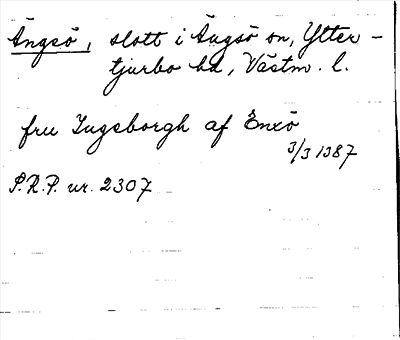 Ängsö, slott i Ängsö sn, Ytter-
tjurbo hd, Västm. l.
fru Ingeborgh af Énxö
3/3 1387
S.R.P. nr. 2307